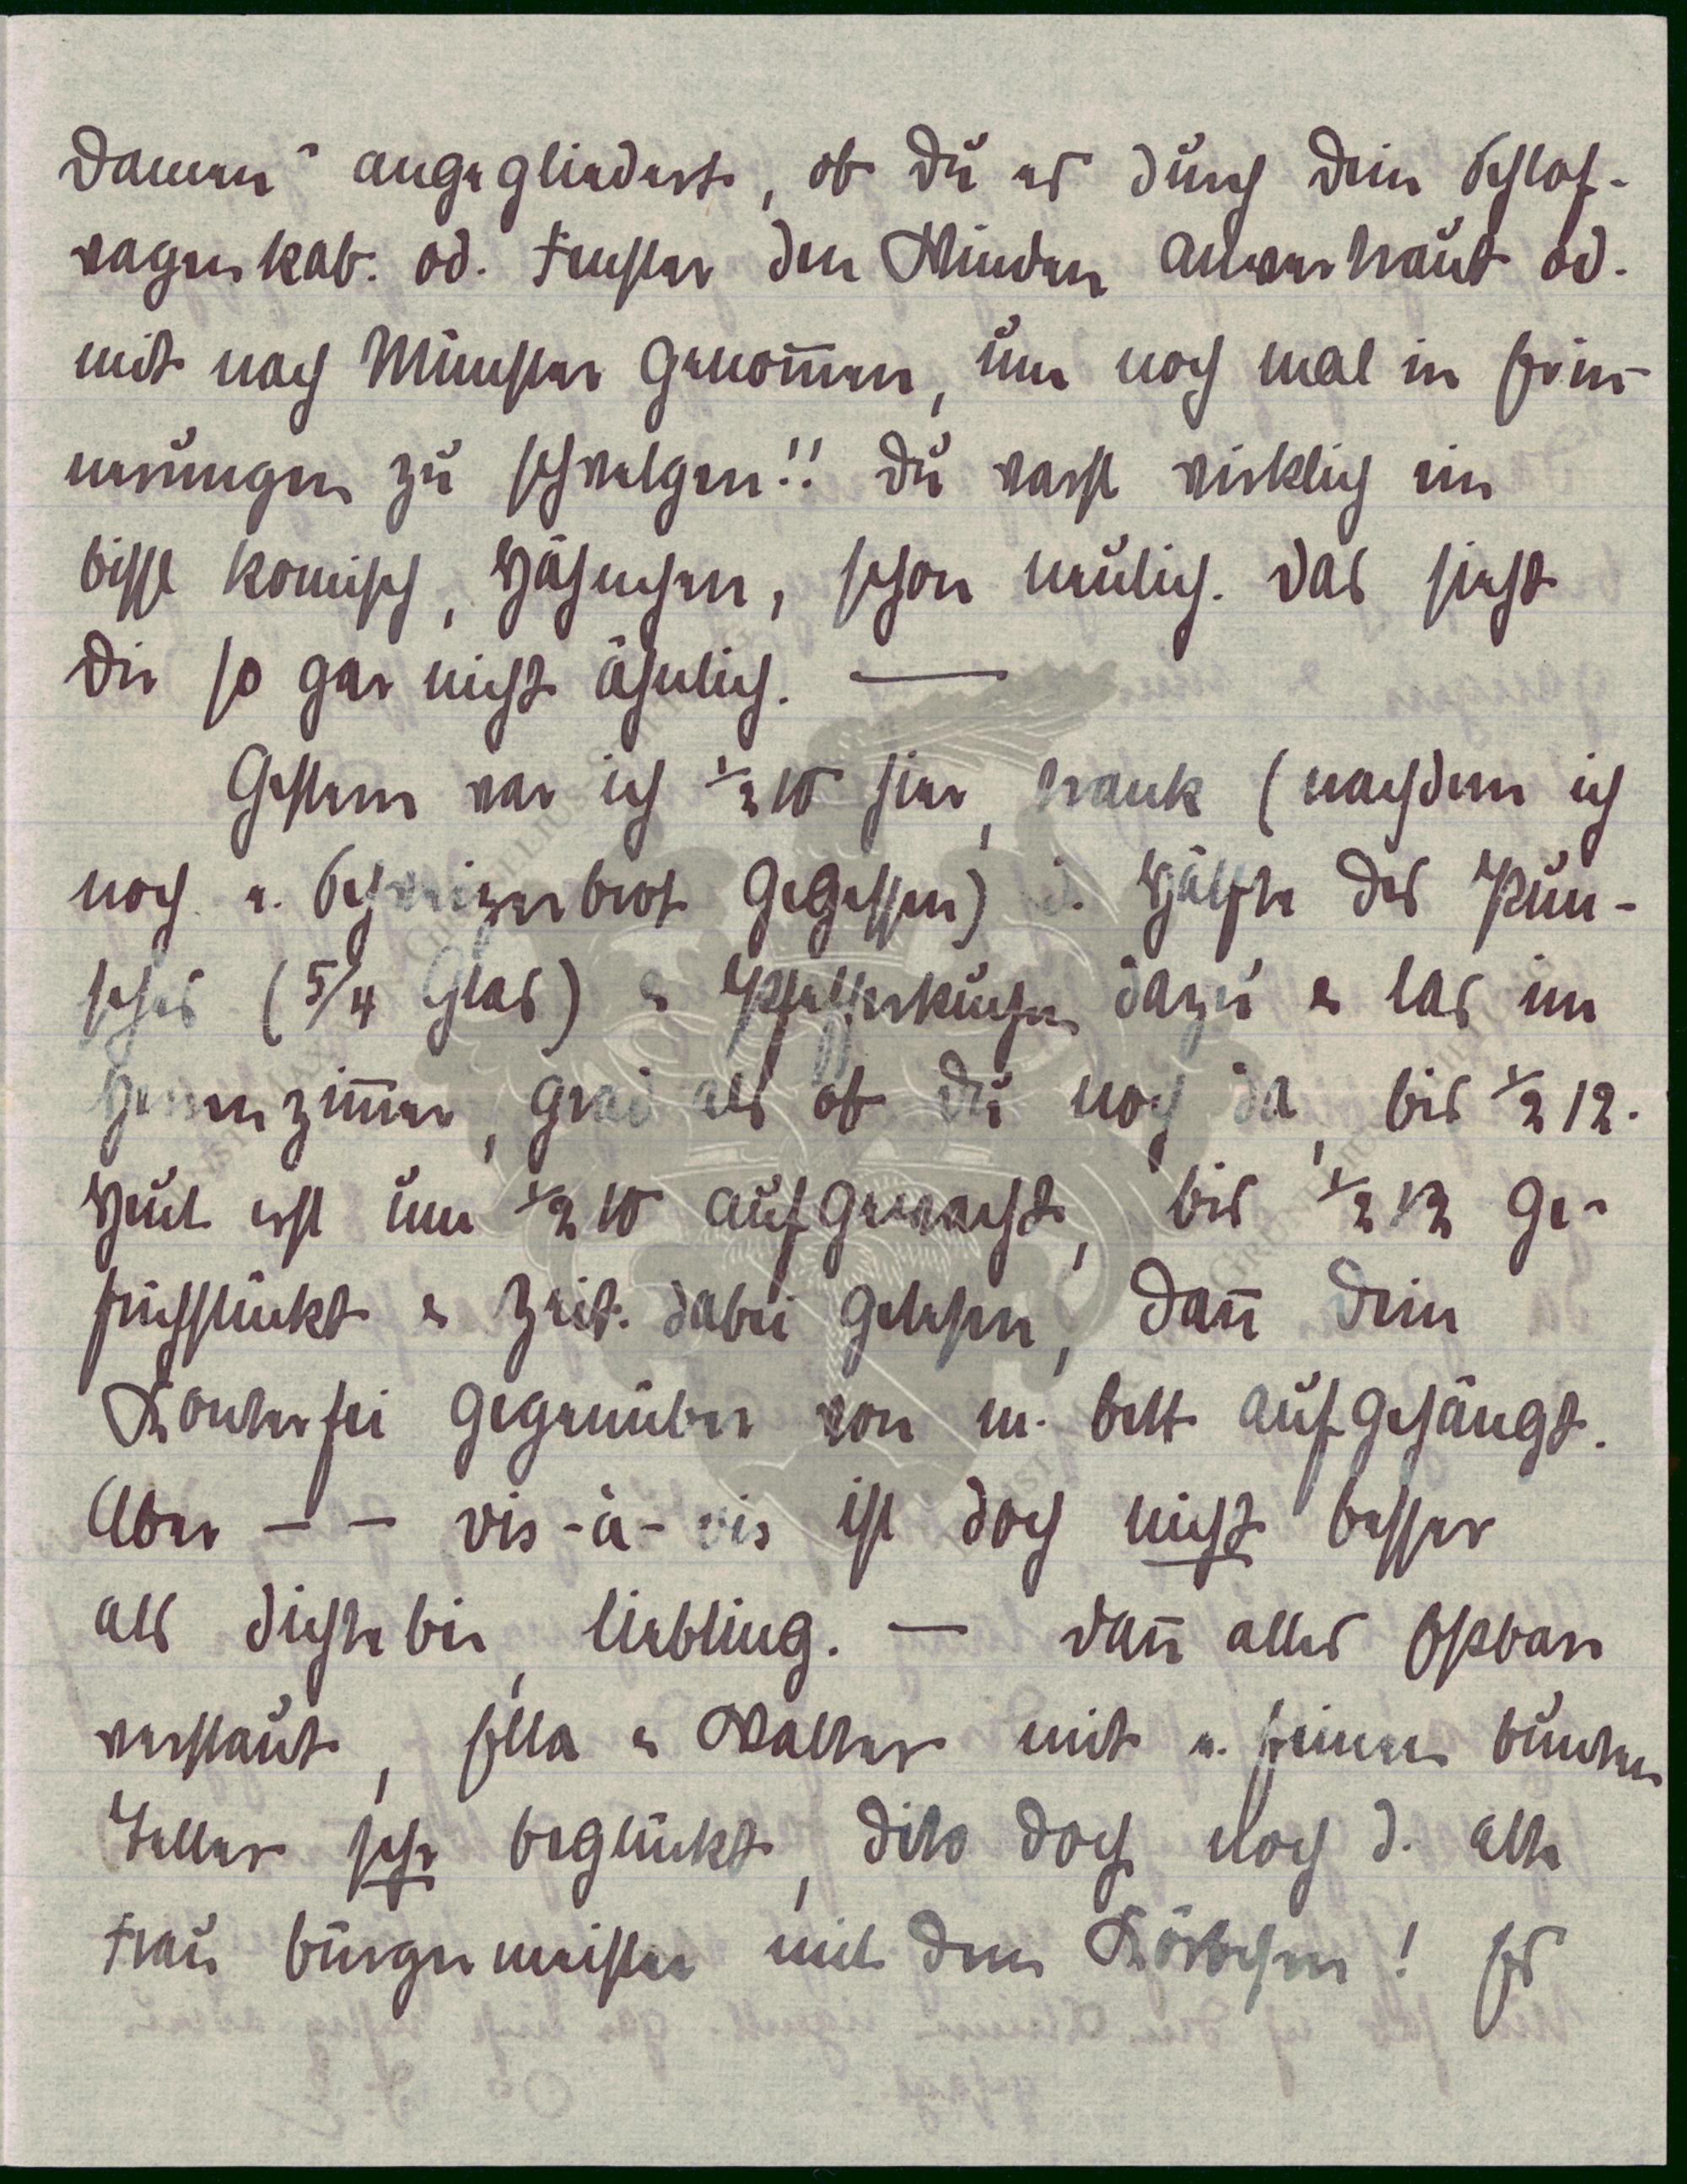 Damen" angegliedert, ob Du es durch Dein Schlaf-
wagenkab. od. Fenster den Winden anvertraut od.
mit nach Münster genom̅en, um noch mal in Erin-
nerungen zu schwelgen!! Du warst wirklich ein
bissl komisch, Hähnchen, schon neulich. Das sieht
Dir so gar nicht ähnlich. —
Gestern war ich ½10 hier, trank (nachdem ich
noch e. Schweizerbrot gegessen) d. Hälfte des Pun-
sches (5/4 Glas) & Pfefferkuchen dazu & las im
Herrenzim̅er, grad als ob Du noch da, bis ½12.
Heut erst um ½10 aufgewacht, bis ½12 ge-
frühstückt & Zeit. dabei gelesen, dan̅ Dein
Konterfei gegenüber von m. Bett aufgehängt.
Aber — — vis-à-vis ist doch nicht besser
als dichtebei, Liebling. — Dan̅ alles Essbare
verstaut, Ella & Walter mit e. feinen bunten
Teller sehr beglückt, dito doch noch d. alte
Frau Bürgermeister mit dem Körbchen! Es